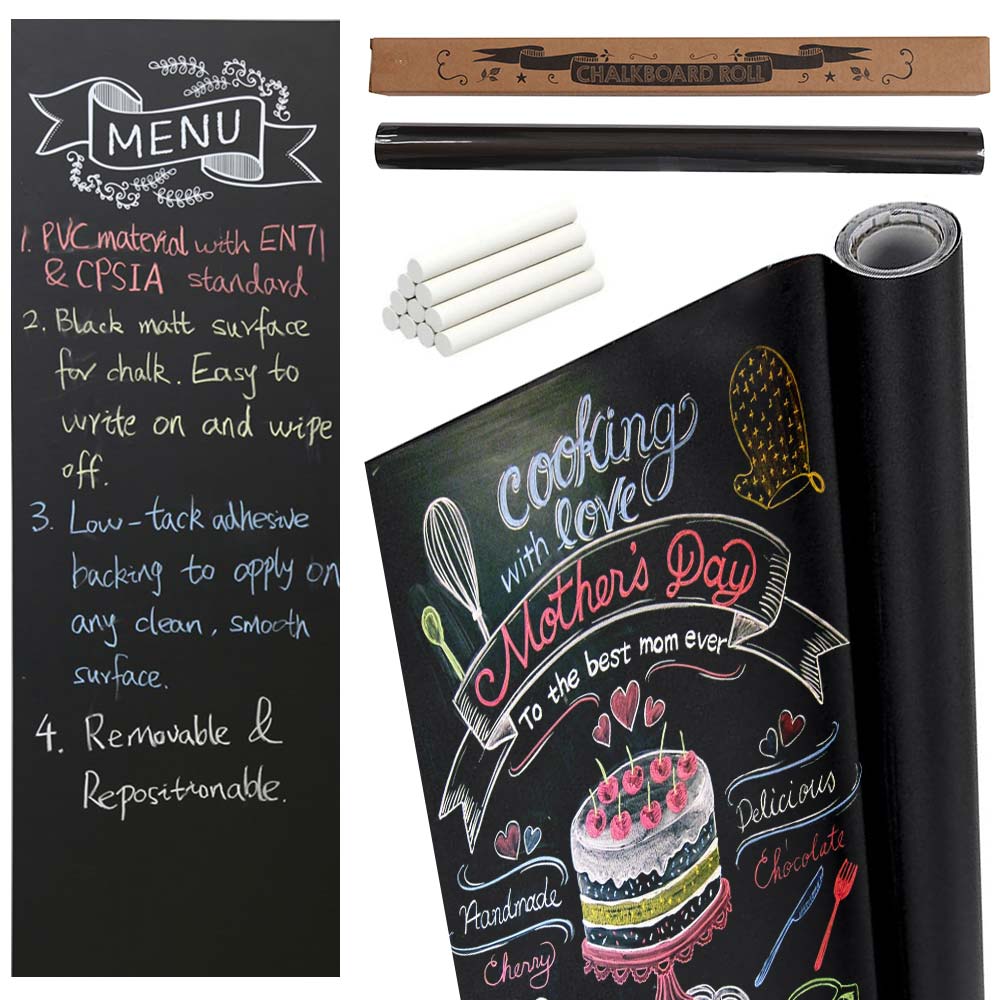 MENU
1. PVC material with EN71
& CPSIA standard
2. Black matt surface
for chalk. Easy to
write on and wipe
off.
3. Low-tack adhesive
backing to apply on
any clean, smooth
surface.
4. Removable &
Repositionable.
CHALKBOARD ROLL
cooking
with love
Mother's Day
To the best mom ever
Delicious
Chocolate
Handmade
Cherry